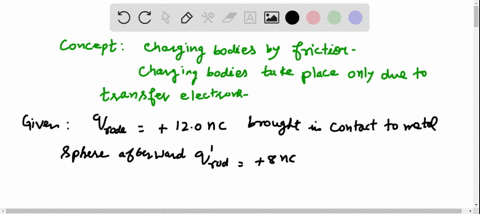 Concept: charging bodies by friction-
charging bodies take place only due to
transfer electrons-
Given: q_rode = + 12.0 nc brought in contact to metal
Sphere afterward q'_rod = +8 nc